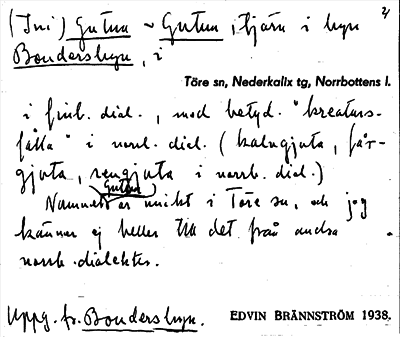 (Ini) Gutun ~ Gutun, tjärn i byn 2/
Bondersbyn, i
Töre sn, Nederkalix tg, Norrbottens l.
i finl. dial., med betyd. "kreaturs-
fålla" i norrl. dial. (kalvgjuta, får-
gjuta, rengjuta i norrb. dial.)
Namnet Gutun är unikt i Töre sn, och jag
känner ej heller till det från andra
norrb. dialekter.
Uppg. fr. Bondersbyn. EDVIN BRÄNNSTRÖM 1938.